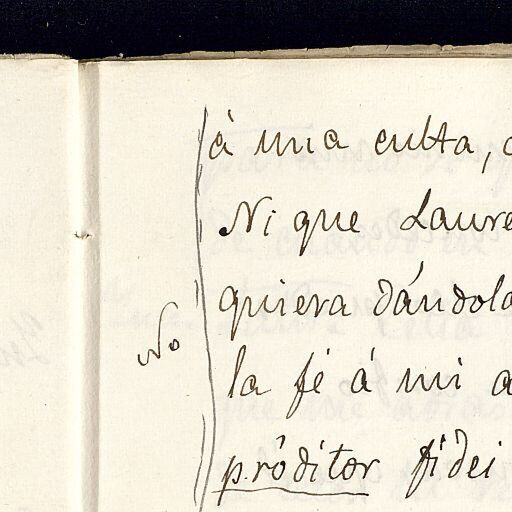 à una culta,
Ni que Laure
quiera dándola
No
la fé á mi a
próditor fidei